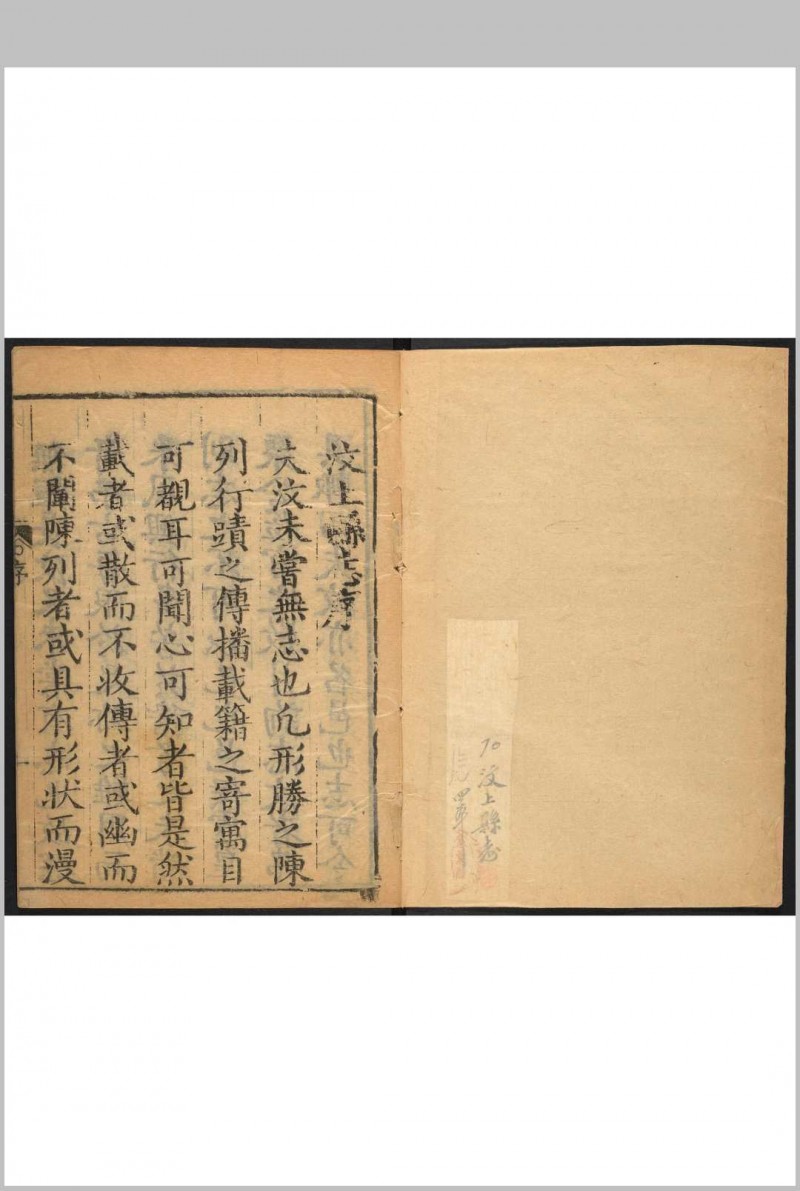 70 汶上縣志
汶上縣志序
夫汶未嘗無志也凢形勝之陳
列行蹟之傳播載籍之寄寓目
可覩耳可聞心可知者皆是然
載者或散而不收傳者或幽而
不闡陳列者或具有形状而漫
序
一